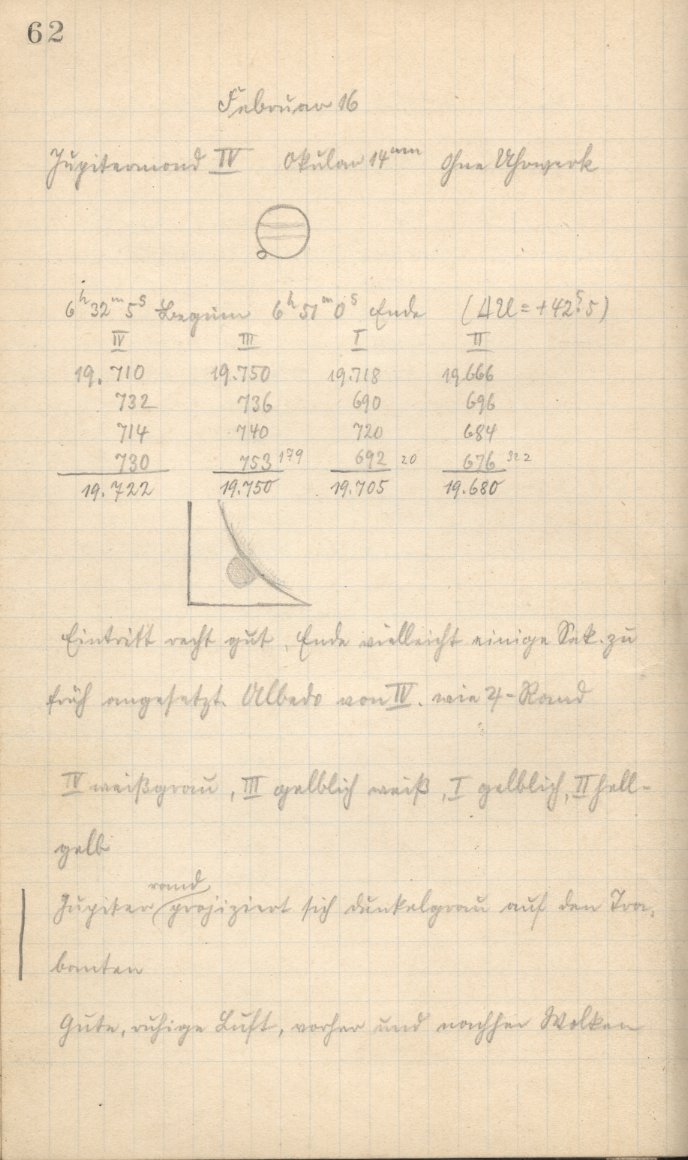 62
Februar 16
Jupitermond IV Okular 14mm Ohne Uhrwerk
6h32m5s Beginn 6h51m0s Ende (ΔU = +42s.5)
IV III I II
19.710 19.750 19.718 19.666
732 736 690 696
714 740 720 684
730 753 179 692 20 676 322
19.722 19.750 19.705 19.680
Eintritt recht gut, Ende vielleicht einige Sek. zu
früh angesetzt. Albedo von IV. wie ♃-Rand
IV weißgrau, III gelblich weiß, I gelblich, II hell-
gelb
rand
Jupiter projiziert sich dunkelgrau auf den Tra-
banten
Gute, ruhige Luft, vorher und nachher Wolken